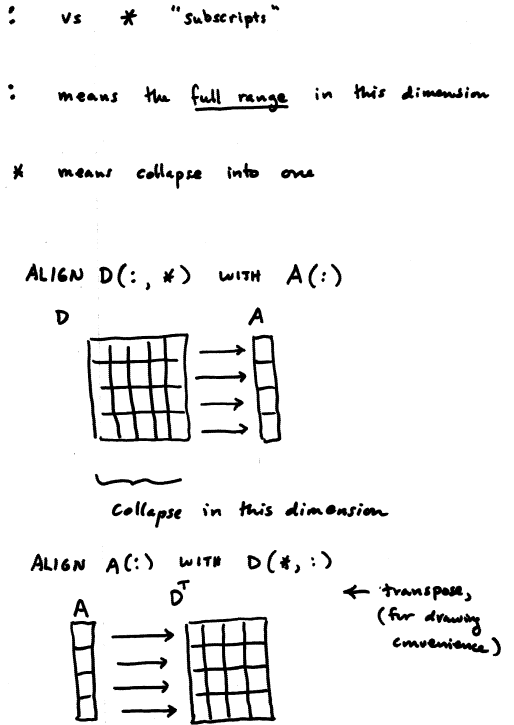 : vs * "subscripts"
: means the full range in this dimension
* means collapse into one
ALIGN D(:, *) WITH A(:)
D A
collapse in this dimension
ALIGN A(:) WITH D(*, :)
A Dᵀ ← transpose,
(for drawing
convenience)